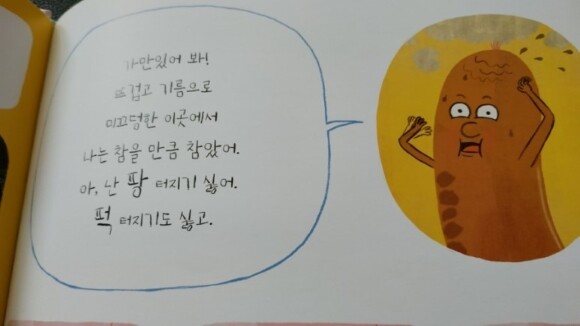 가만있어 봐!
뜨겁고 기름으로
미끄덩한 이곳에서
나는 참을 만큼 참았어.
아, 난 팡 터지기 싫어.
퍽 터지기도 싫고.